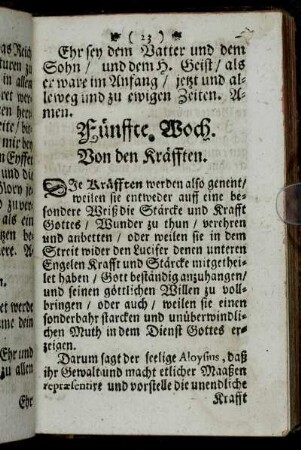 ( 23 )
as Reich
turen zu
in allen
ret wer-
en herz-
eite / bit-
mir bey
n Eyffer
und die
zu ver-
als ein
tzen be-
ere. A-
en.
et werde
ume dein
Ehr und
zu allen
Ehr
Ehr sey dem Vatter und dem
Sohn / und dem H. Geist / als
er ware im Anfang / jetzt und al-
leweg und zu ewigen Zeiten. A-
men.
Fünffte Woch.
Von den Kräfften.
DIe Kräfften werden also genent /
weilen sie entweder auff eine be-
sondere Weiß die Stärcke und Krafft
Gottes / Wunder zu thun / verehren
und anbetten / oder weilen sie in dem
Streit wider den Lucifer denen unteren
Engelen Krafft und Stärcke mitgethei-
let haben / Gott beständig anzuhangen /
und seinen göttlichen Willen zu voll-
bringen / oder auch / weilen sie einen
sonderbahr starcken und unüberwindli-
chen Muth in dem Dienst Gottes er-
zeigen.
Darum sagt der seelige Aloysius, daß
ihr Gewalt und macht etlicher Maaßen
repræsentire und vorstelle die unendliche
Krafft